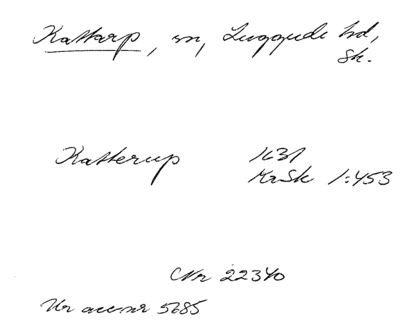 Kattarp, sn, Luggude hd,
Sk.
Katterup 1631
KrSk 1:453
CNr 22340
Ur accnr 5685